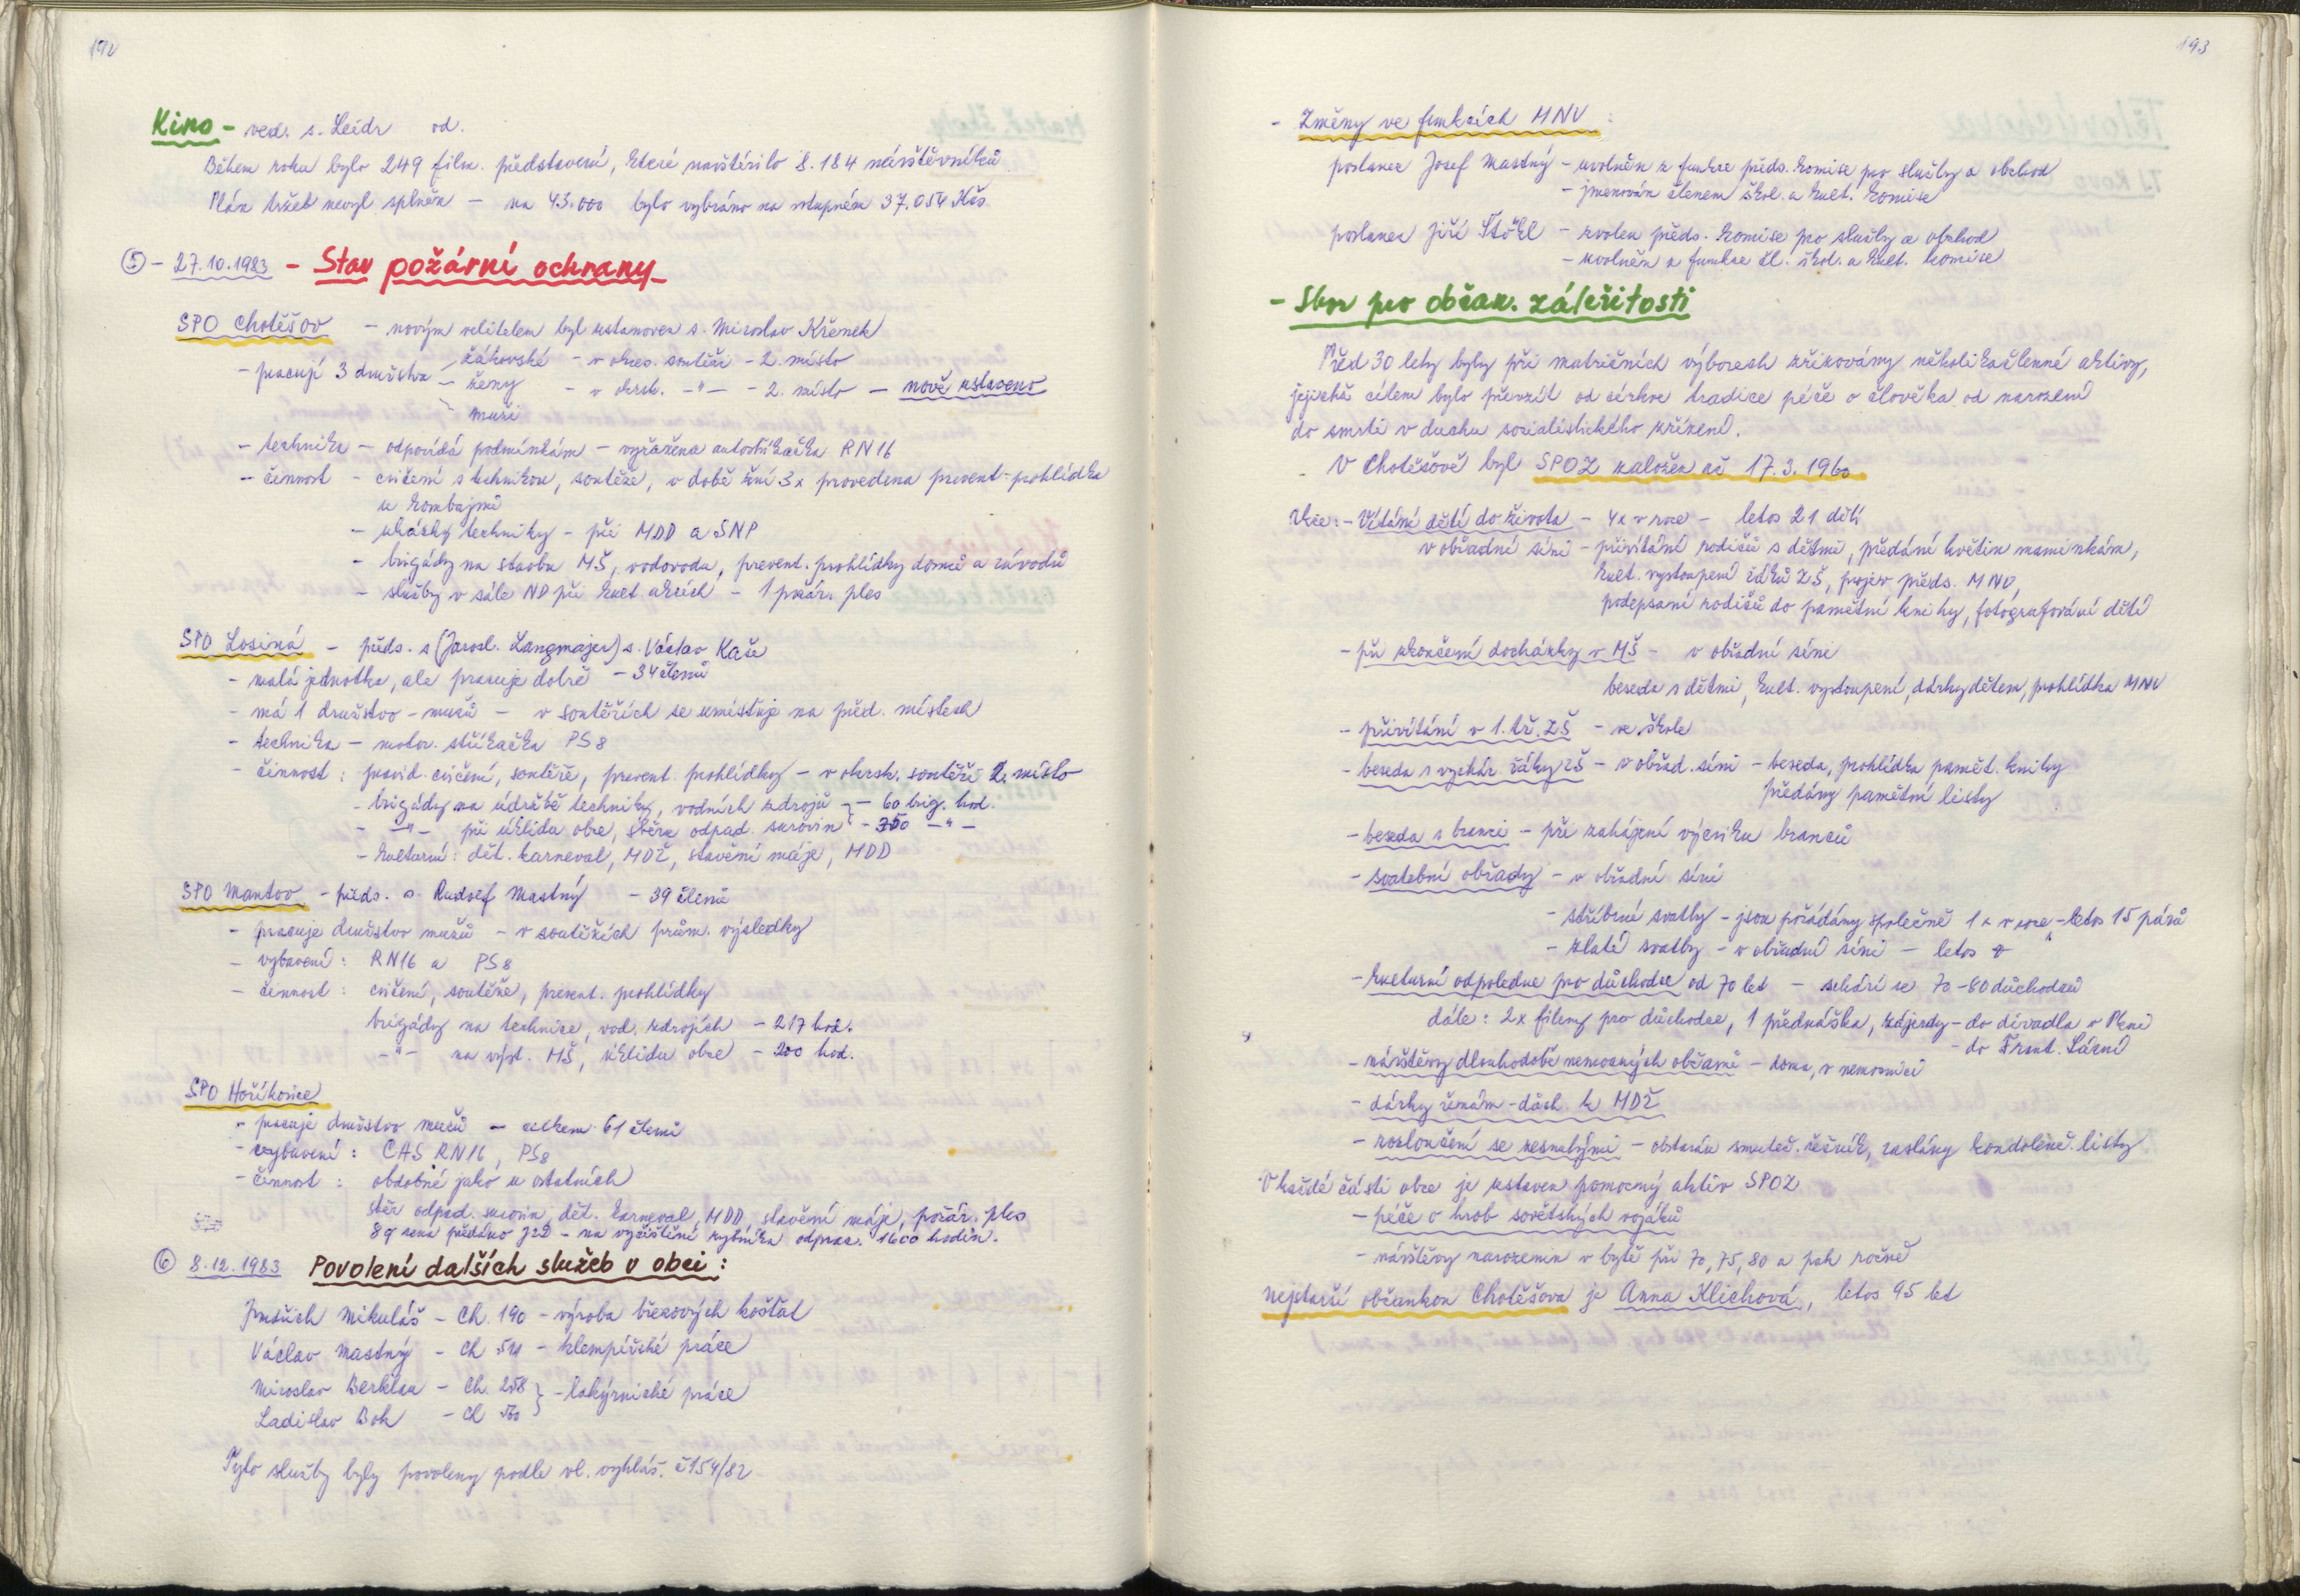 192
Kino - ved. s. Leidr od.
Během roku bylo 249 film. představení, které navštívilo 8.184 návštěvníků
Plán tržeb nebyl splněn - na 43.000 bylo vybráno na vstupném 37.054 Kčs.
⑤ - 27.10.1983 - Stav požární ochrany
SPO Chotěšov - novým velitelem byl ustanoven s. Miroslav Křenek
- pracují 3 družstva žákovské - v okres. soutěži - 2. místo
- ženy - v okrsk. -"- - 2. místo - nově ustaveno
muži
- technika - odpovídá podmínkám - vyřazena autostříkačka RN16
- činnost - cvičení s technikou, soutěže, v době žní 3x provedena prevent. prohlídka
u kombajnů
- ukázky techniky - při MDD a SNP
- brigády na stavbu MŠ, vodovodu, prevent. prohlídky domů a závodů
- služby v sále ND při kult. akcích - 1 požár. ples
SPO Losiná - předs. s (Jarosl. Langmajer) s. Václav Kaše
- malá jednotka, ale pracuje dobře - 34 členů
- má 1 družstvo - mužů - v soutěžích se umísťuje na před. místech
- technika - motor. stříkačka PS8
- činnost : pravid. cvičení, soutěže, prevent. prohlídky - v okrsk. soutěži 2. místo
- brigády na údržbě techniky, vodních zdrojů - 60 brig. hod.
- -"- při úklidu obce, sběru odpad. surovin - 350 -"-
- kulturní : dět. karneval, MDŽ, stavění máje, MDD
SPO Mantov - předs. s. Rudolf Mastný - 39 členů
- pracuje družstvo mužů - v soutěžích prům. výsledky
- vybavení : RN16 a PS8
- činnost : cvičení, soutěže, prevent. prohlídky
brigády na technice, vod. zdrojích - 217 hod.
-"- na výst. MŠ, úklidu obce - 200 hod.
SPO Hoříkovice
- pracuje družstvo mužů - celkem 61 členů
- vybavení : CAS RN16, PS8
- činnost : obdobné jako u ostatních
sběr odpad. surovin, dět. karneval, MDD, stavění máje, požár. ples
8 q sena předáno JZD - na vyčištění rybníka odprac. 1600 hodin.
⑥ 8.12.1983 Povolení dalších služeb v obci :
Jindřich Mikuláš - Ch. 190 - výroba březových košťat
Václav Mastný - Ch - klempířské práce
Miroslav - Ch. 258 } - lakýrnické práce
Ladislav Bok - Ch
Tyto služby byly povoleny podle vl. vyhláš. č 154/82
193
- Změny ve funkcích MNV :
poslanec Josef Mastný - uvolněn z funkce předs. komise pro služby a obchod
- jmenován členem škol. a kult. komise
poslanec Jiří Stöhl - zvolen předs. komise pro služby a obchod
- uvolněn z funkce čl. škol. a kult. komise
- Sbor pro občan. záležitosti
Před 30 lety byly při matričních výborech zřizovány několikačlenné aktivy,
jejichž cílem bylo převzít od církve tradice péče o člověka od narození
do smrti v duchu socialistického zřízení.
V Chotěšově byl SPOZ založen až 17.3.1960
Akce : - Vítání dětí do života - 4x v roce - letos 21 dětí
v obřadní síni - přivítání rodičů s dětmi, předání květin maminkám,
kult. vystoupení žáků ZŠ, projev předs. MNV,
podepsaní rodičů do pamětní knihy, fotografování dětí
- při ukončení docházky v MŠ - v obřadní síni
beseda s dětmi, kult. vystoupení, dárky dětem, prohlídka MNV
- přivítání v 1. tř. ZŠ - ve škole
- beseda s vycház. žáky ZŠ - v obřad. síni - beseda, prohlídka pamět. knihy
předány pamětní listy
- beseda s branci - při zahájení výcviku branců
- svatební obřady - v obřadní síni
- stříbrné svatby - jsou pořádány společně 1x v roce - letos 15 párů
- zlaté svatby - v obřadní síni - letos
- kulturní odpoledne pro důchodce od 70 let - schází se 70 - 80 důchodců
dále : 2x filmy pro důchodce, 1 přednáška, zájezdy - do divadla v Plzni
- do Frant. Lázní
- návštěvy dlouhodobě nemocných občanů - doma, v nemocnici
- dárky ženám - důch. k MDŽ
- rozloučení se zesnulými - obstarán smuteč. řečník, zaslány kondolenč. listy
V každé části obce je ustaven pomocný aktiv SPOZ
- péče o hrob sovětských vojáků
- návštěvy narozenin v bytě při 70, 75, 80 a pak ročně
nejstarší občankou Chotěšova je Anna Klichová, letos 95 let